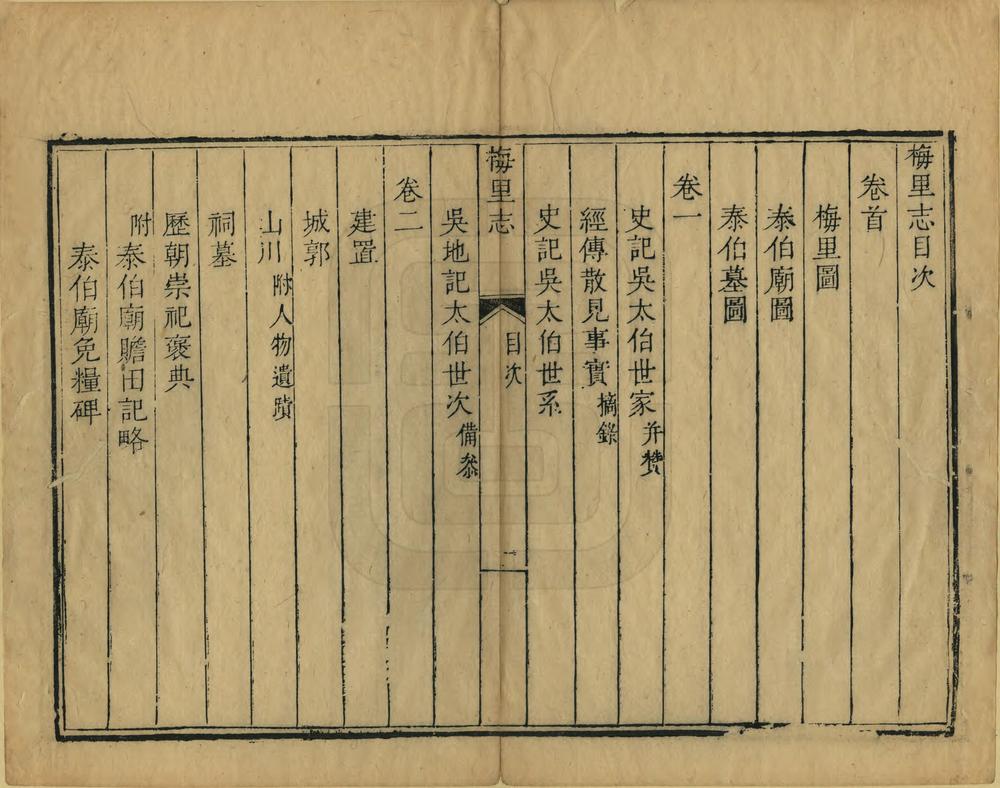 梅里志目次
卷首
梅里圖
泰伯廟圖
泰伯墓圖
卷一
史記吳太伯世家并贊
經傳散見事實摘錄
史記吳太伯世系
梅里志 目次 一
吳地記太伯世次備叅
卷二
建置
城郭
山川附人物遺蹟
祠墓
歷朝崇祀褒典
附泰伯廟贍田記略
泰伯廟免糧碑